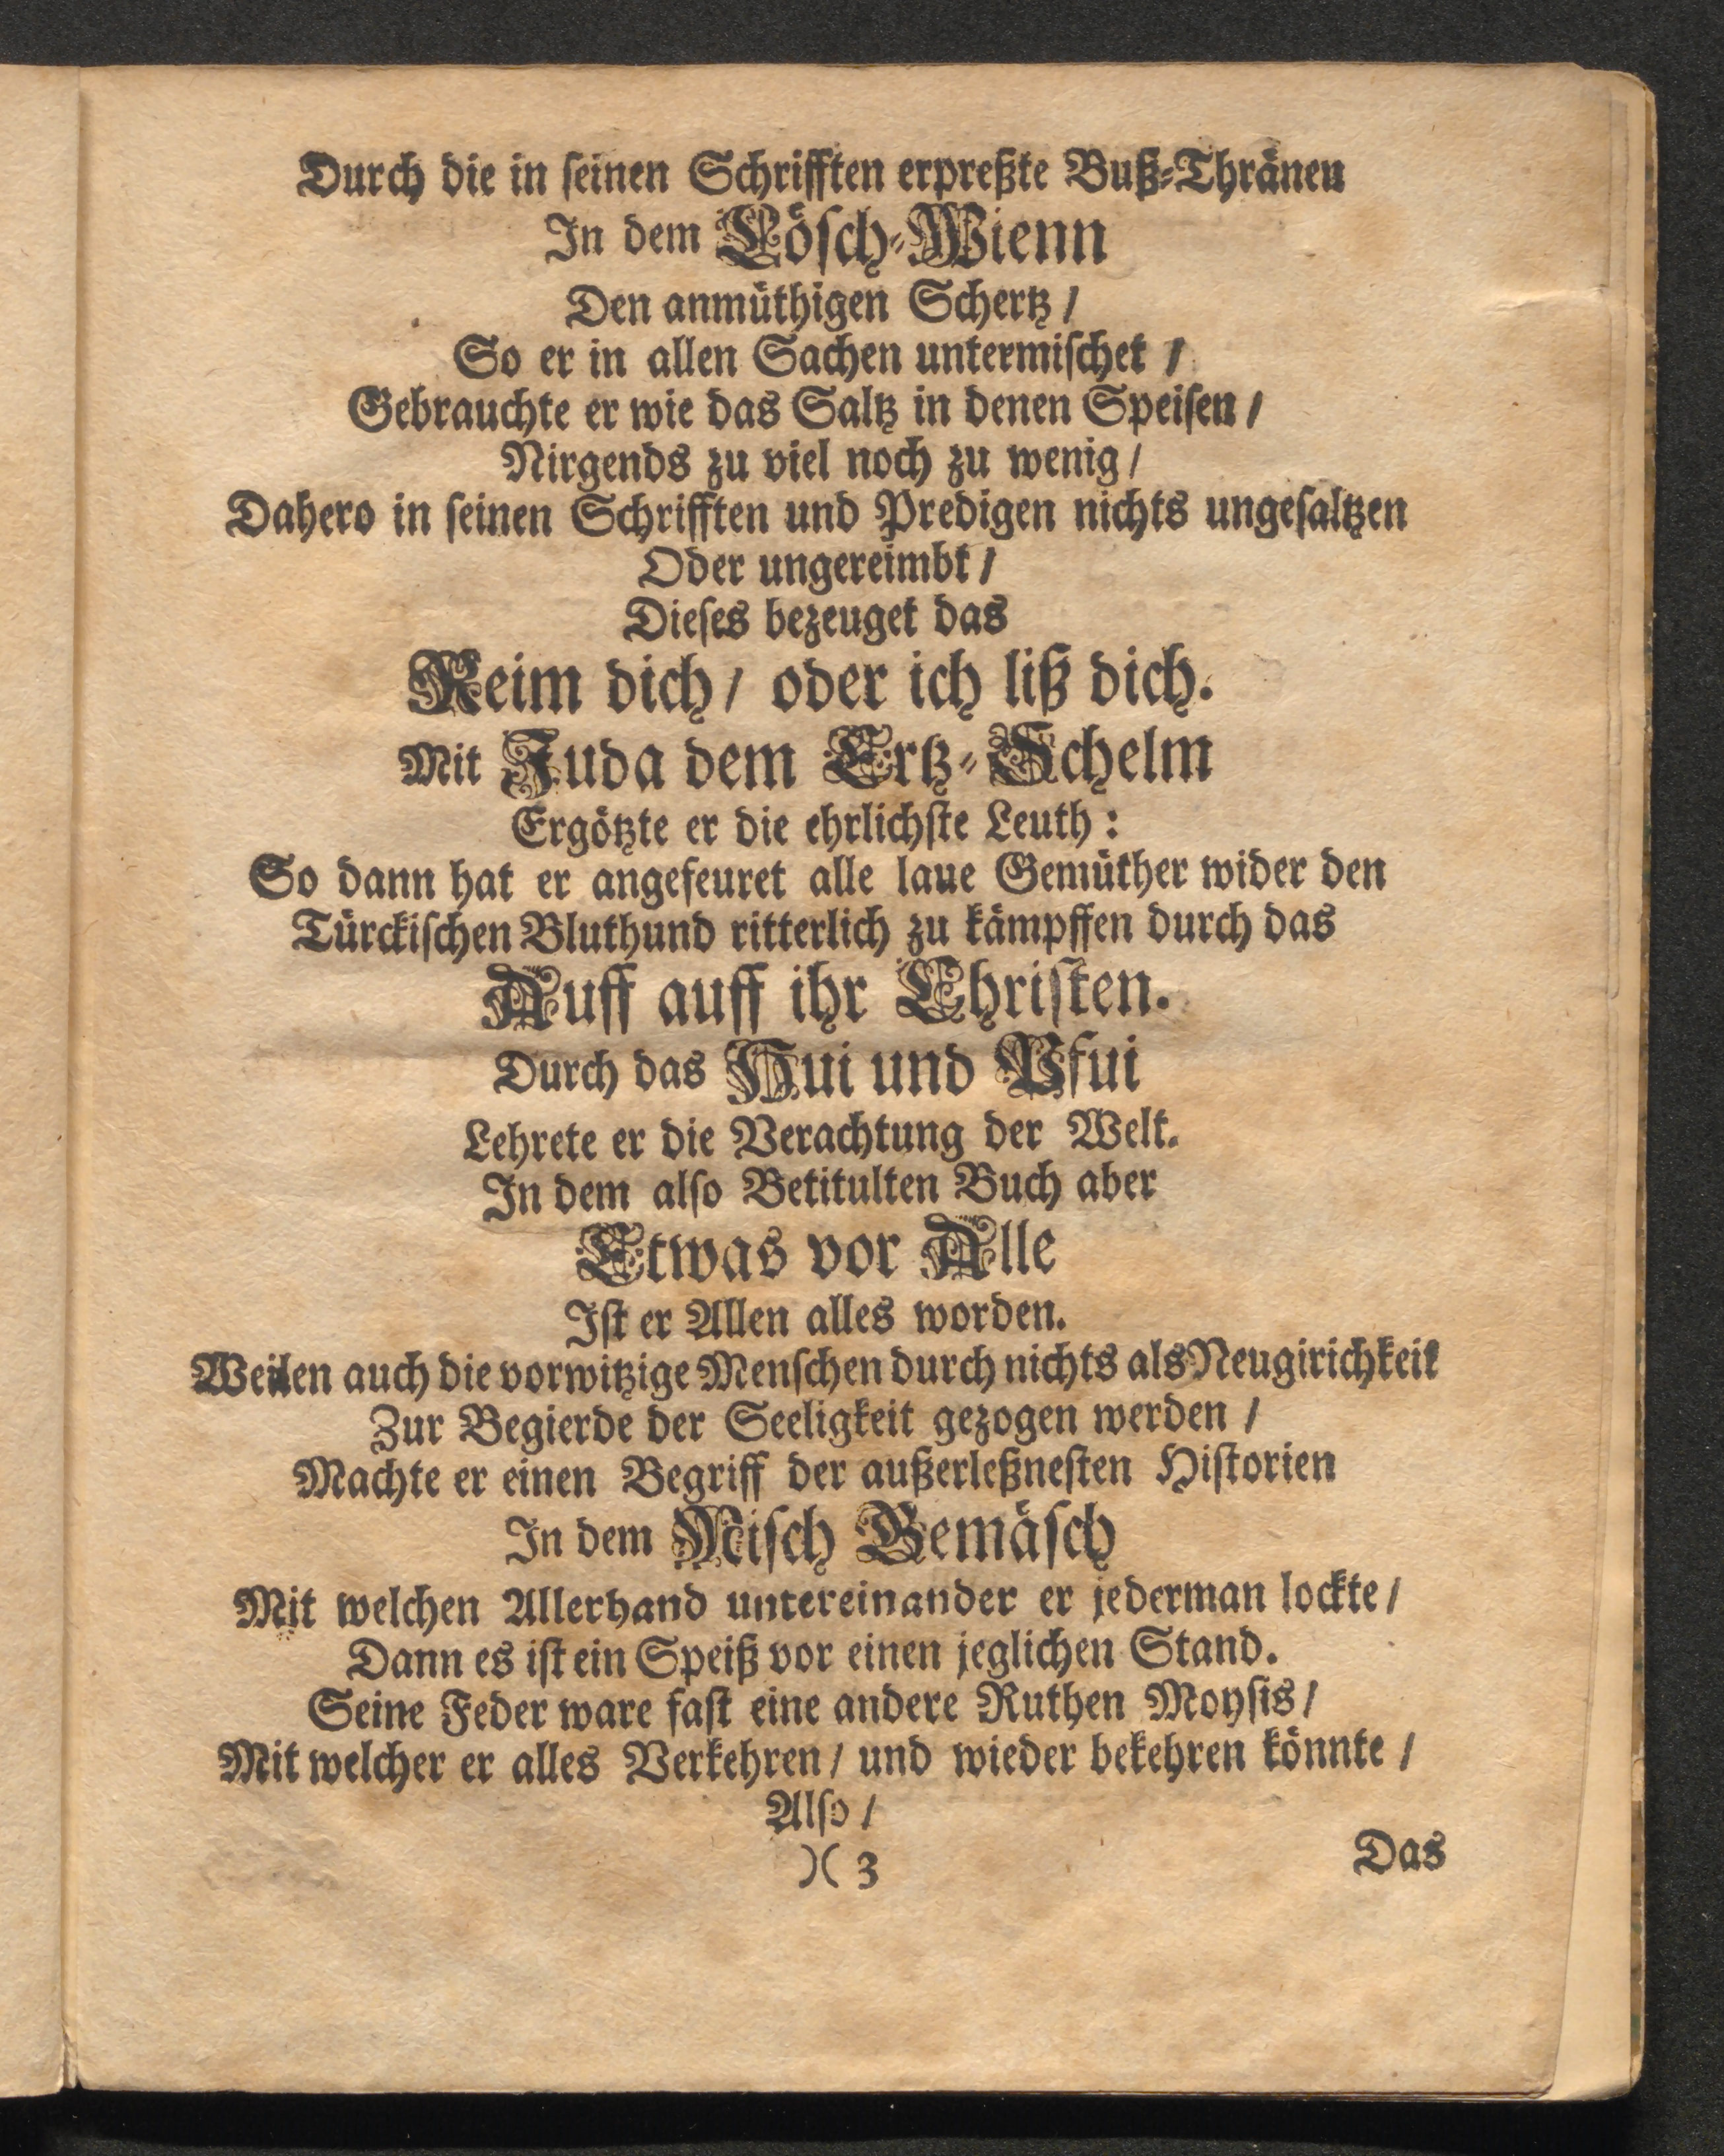 Durch die in ſeinen Schrifften erpreßte Buß-Thränen
In dem Löſch-Wienn
Den anmüthigen Schertz /
So er in allen Sachen untermiſchet /
Gebrauchte er wie das Saltz in denen Speiſen /
Nirgends zu viel noch zu wenig /
Dahero in ſeinen Schrifften und Predigen nichts ungeſaltzen
Oder ungereimbt /
Dieſes bezeuget das
Reim dich / oder ich liß dich.
Mit Juda dem Ertz-Schelm
Ergötzte er die ehrlichſte Leuth :
So dann hat er angefeuret alle laue Gemüther wider den
Türckiſchen Bluthund ritterlich zu kämpffen durch das
Auff auff ihr Chriſten.
Durch das Hui und Pfui
Lehrete er die Verachtung der Welt.
In dem alſo Betitulten Buch aber
Etwas vor Alle
Iſt er Allen alles worden.
Weilen auch die vorwitzige Menſchen durch nichts als Neugirichkeit
Zur Begierde der Seeligkeit gezogen werden /
Machte er einen Begriff der außerleßneſten Hiſtorien
In dem Miſch Gemäſch
Mit welchen Allerhand untereinander er jederman lockte /
Dann es iſt ein Speiß vor einen jeglichen Stand.
Seine Feder ware faſt eine andere Ruthen Moyſis /
Mit welcher er alles Verkehren / und wieder bekehren könnte /
Alſo /
)( 3
Das